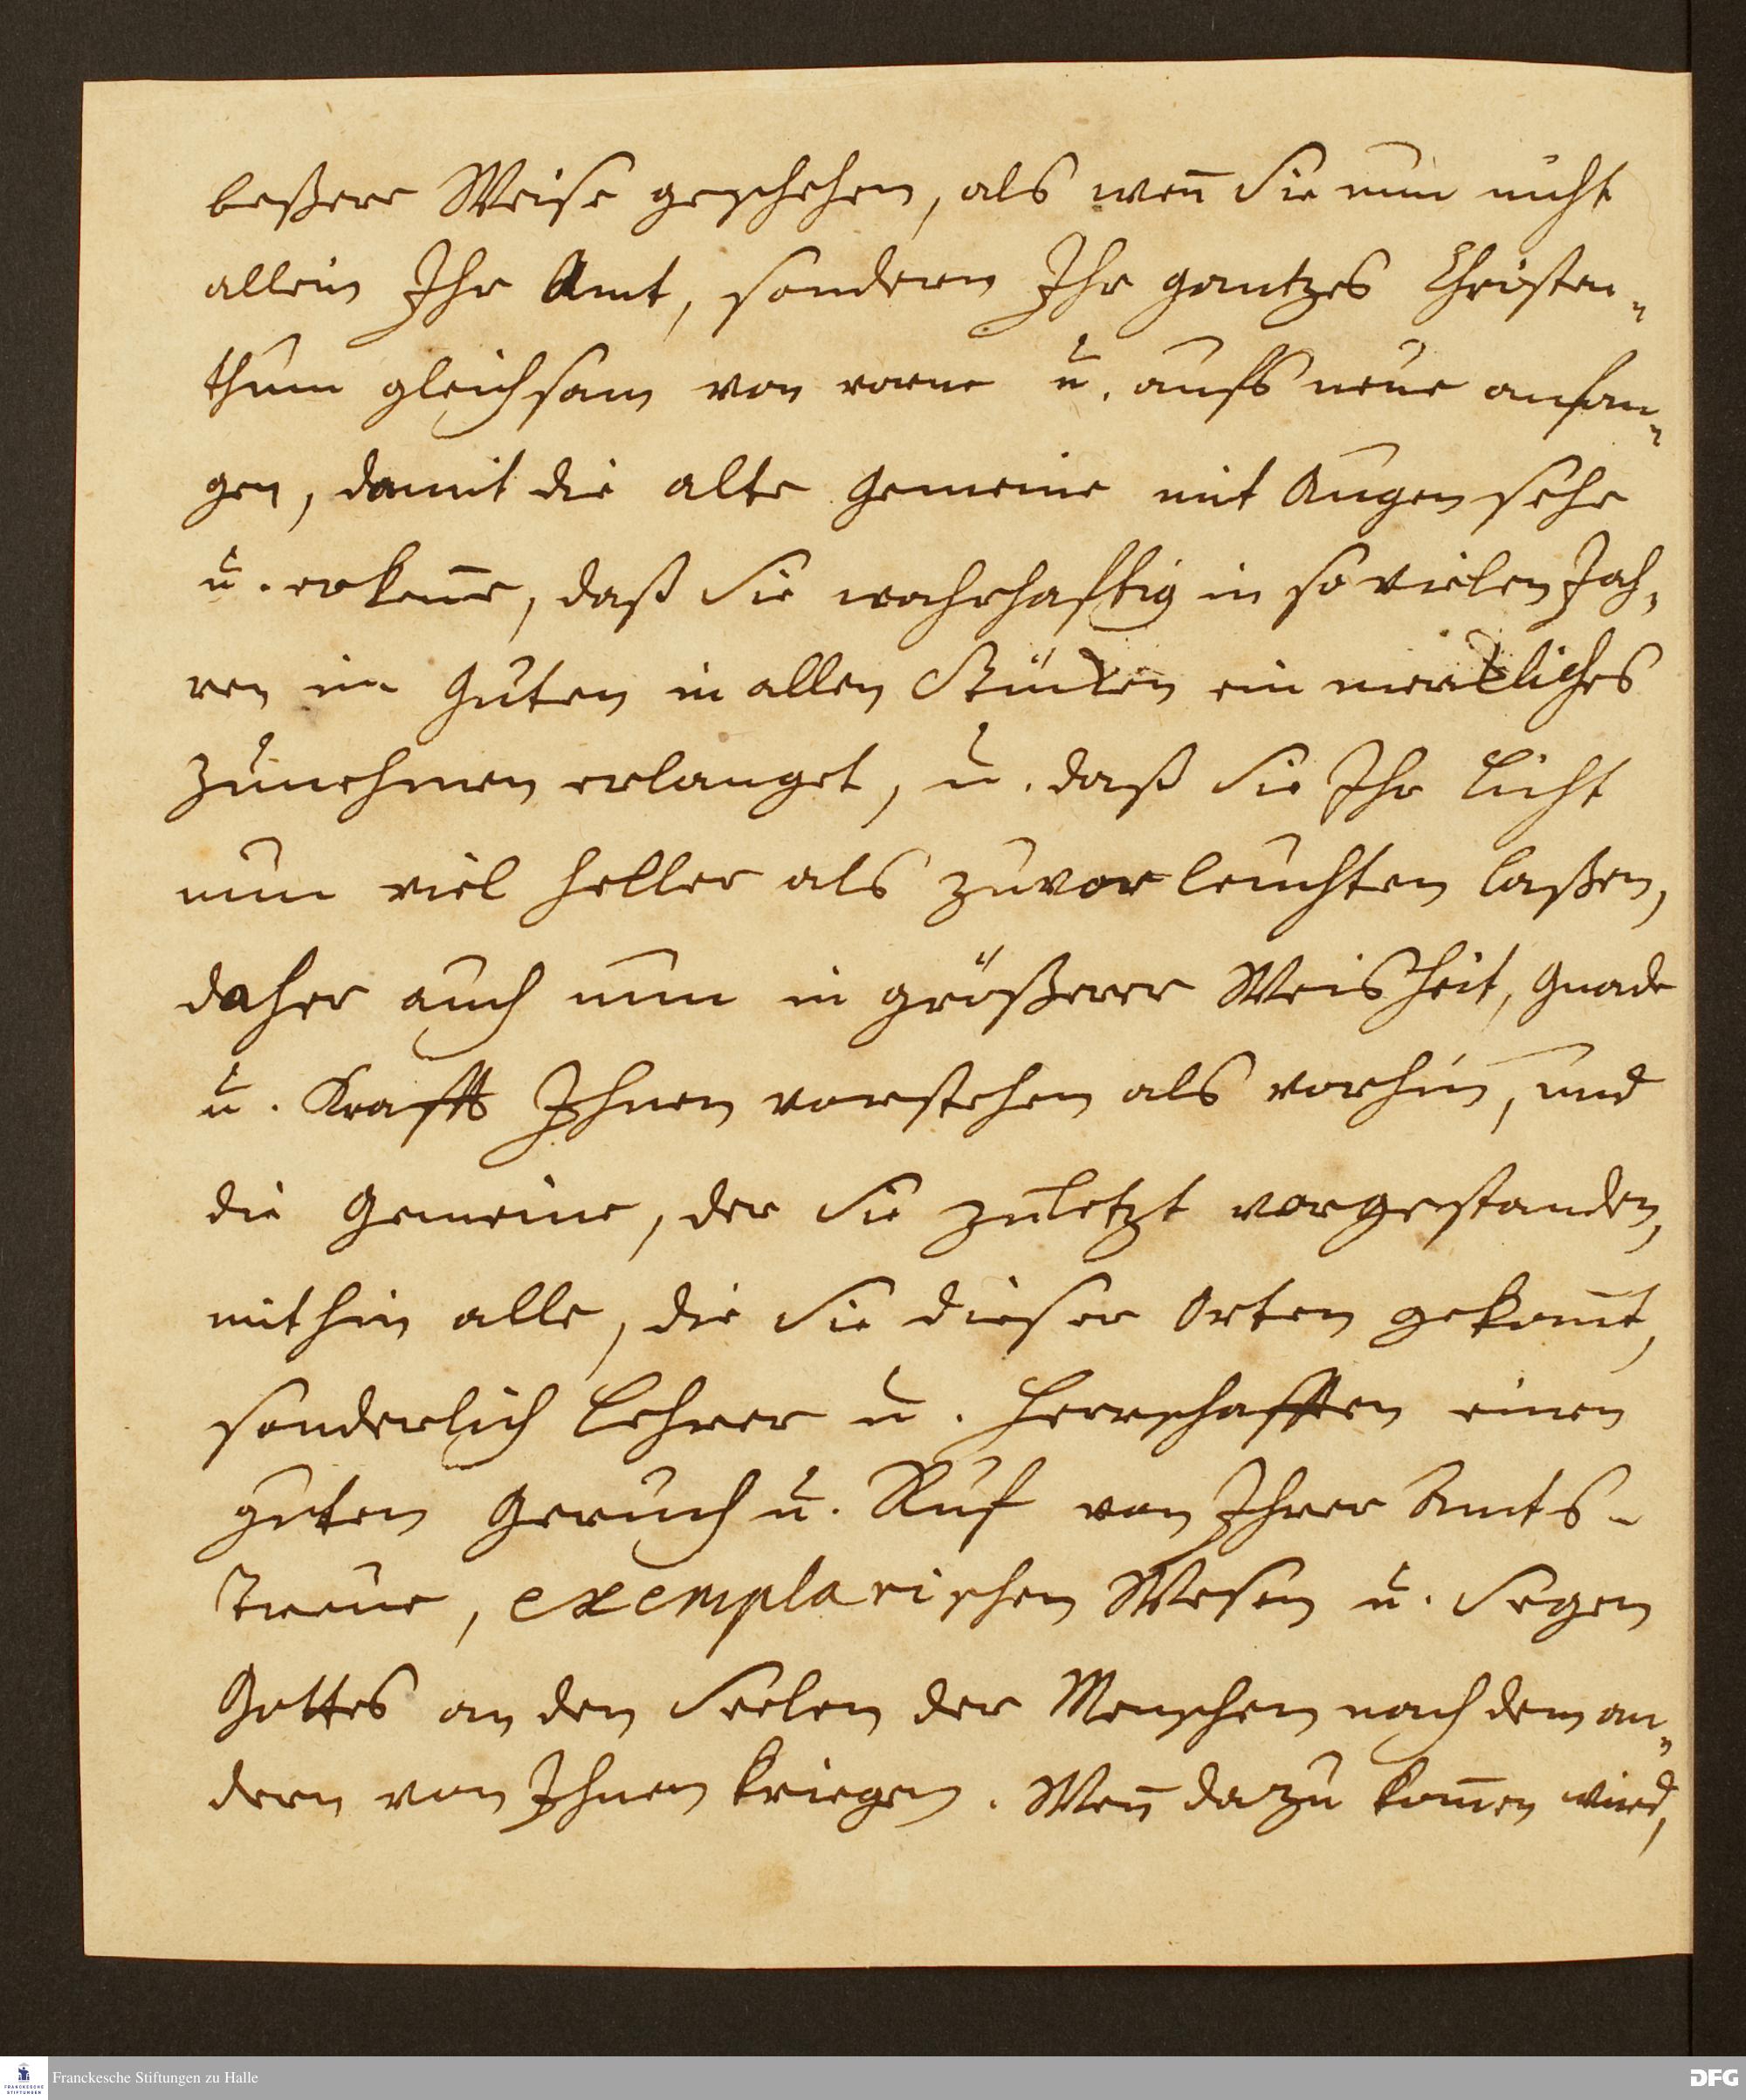 beßere Weise geschehen, als weñ Sie nun nicht
allein Ihr Amt, sondern Ihr gantzes Christen-
thum gleichsam von vorne u. aufs neue anfan-
gen, damit die alte Gemeine mit Augen sehe
u. erkeñe, daß Sie wahrhafftig in so vielen Jah-
ren im Guten in allen Stücken ein merckliches
Zunehmen erlanget, u. daß Sie Ihr Licht
nun viel heller als zuvor leuchten laßen,
daher auch nun in größerer Weisheit, Gnade
u. Krafft Ihnen vorstehen als vorhin, und
die Gemeine, der Sie zuletzt vorgestanden,
mithin alle, die Sie dieser Orten gekañt,
sonderlich Lehrer u. Herrschafften einen
guten Geruch u. Ruf von Ihrer Amts-
Treue, exemplarischen Wesen u. Segen
Gottes an den Seelen der Menschen nach dem an-
dern von Ihnen kriegen. Weñ dazu kom̃en wird,
Franckesche Stiftungen zu Halle
FRANCKESCHE
STIFTUNGEN
DFG